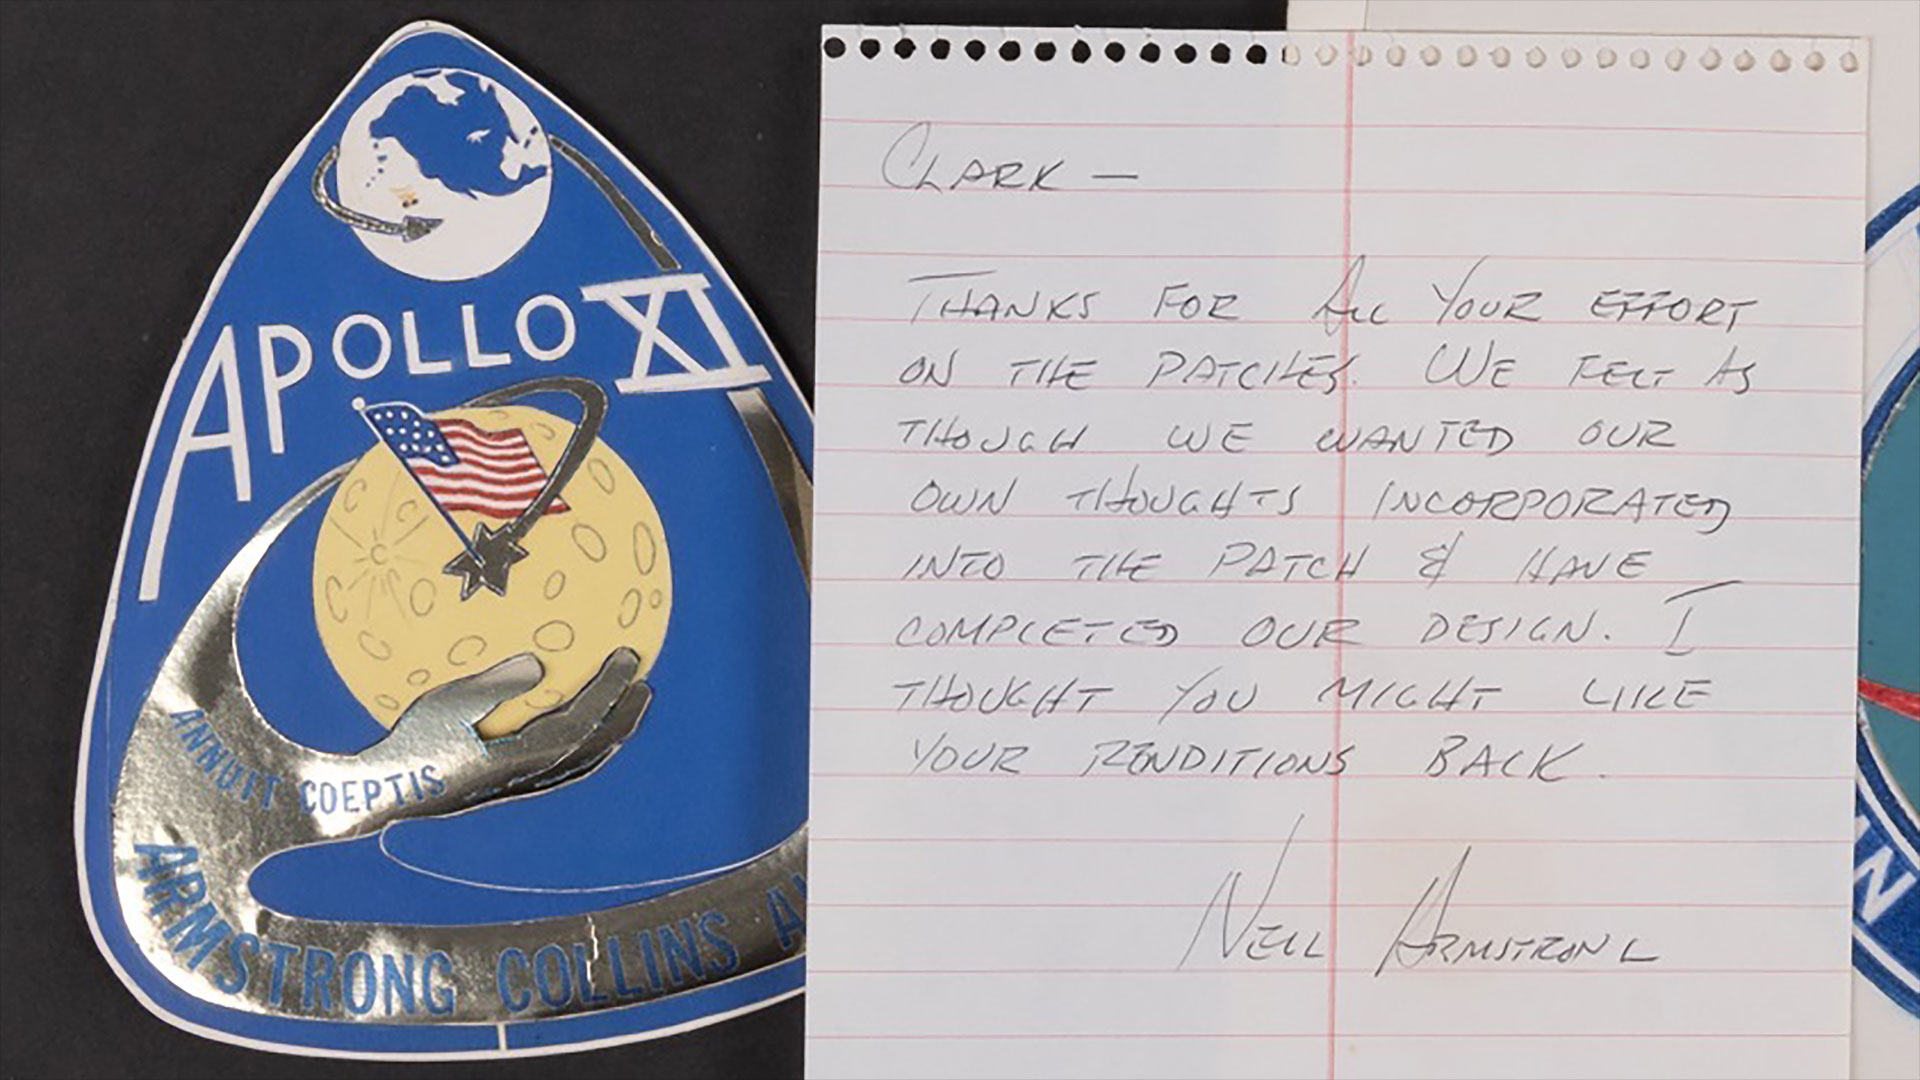 APOLLO XI
ANNUIT COEPTIS
ARMSTRONG COLLINS A
CLARK —
THANKS FOR ALL YOUR EFFORT
ON THE PATCHES. WE FELT AS
THOUGH WE WANTED OUR
OWN THOUGHTS INCORPORATED
INTO THE PATCH & HAVE
COMPLETED OUR DESIGN. I
THOUGHT YOU MIGHT LIKE
YOUR RENDITIONS BACK.
NEIL ARMSTRONG
N